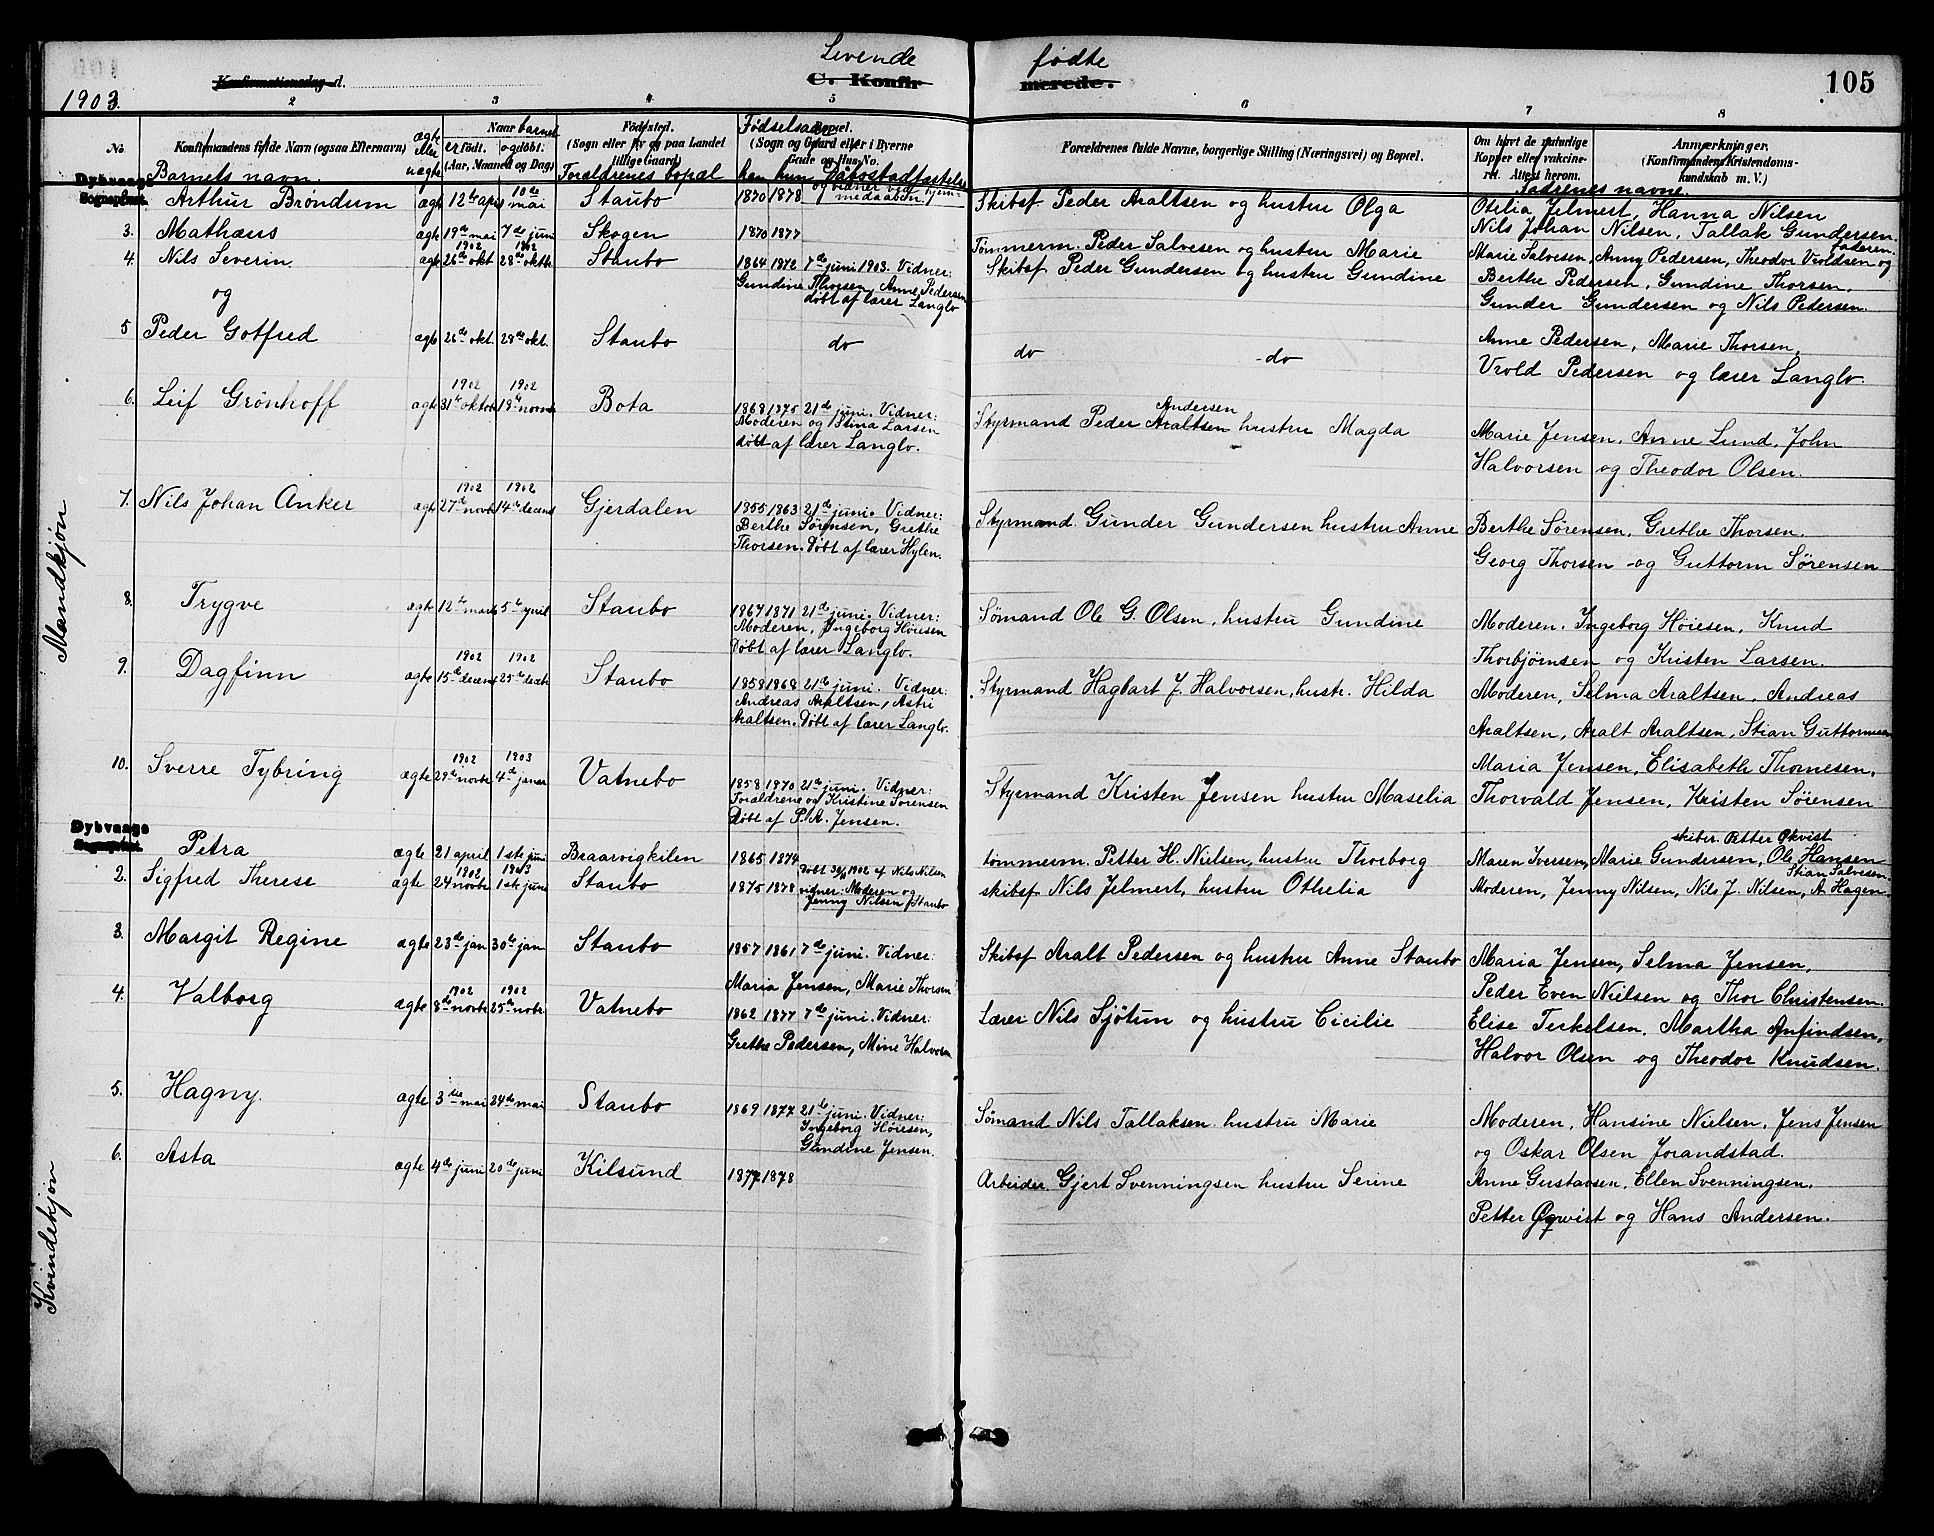 Levende fødte
1903.
Konfirmationsdag d.
C. Konfirmerede.
105
2 3 4 5 6 7 8
No.
Konfirmandens fulde Navn (ogsaa Efternavn)
Barnets navn.
ægte eller uægte
Naar barnet er født. og døbt.
(Aar, Maaned og Dag)
Fødested.
(Sogn eller By og paa Landet tillige Gaard)
Forældrenes bopæl
Fødselsaar
Bopæl.
(Sogn og Gaard eller i Byerne Gade og Hus-No.
han hun Daabsstadfæstelse og vidner ved hjemmedaaben.
Forældrenes fulde Navne, borgerlige Stilling (Næringsvei) og Bopæl.
Om havt de naturlige Kopper eller vakcineret. Attest herom.
Anmærkninger.
(Konfirmandens Kristendomskundskab m. V.)
Fadrenes navne.
Mandkjøn
Dybvaags Sogneprest.
Arthur Brøndum ægte 12te apr 10de mai Staubo 1870 1878 Skibsf. Peder Araltsen og hustru Olga Otilia Jelmert, Hanna Nilsen
3. Mathæus ægte 19de mai 7de juni Skogen 1870 1877 Tømmerm. Peder Salvesen og hustru Marie Nils Johan Nilsen, Tallak Gundersen.
Marie Salvesen, Anny Pedersen, Theodor Vroldsen og faderen
4. Nils Severin og ægte 1902 26de okt. 1902 28de oktb Staubo 1864 1872 7de juni 1903. Vidner: Skibsf. Peder Gundersen og hustru Gundine
Gundine Thorsen, Anne Pedersen
døbt af lærer Langlo
Berthe Pedersen, Gundine Thorsen.
Gunder Gundersen og Nils Pedersen.
5 Peder Gotfred ægte 26de okt. 28de okt. Staubo do do -do Anne Pedersen, Marie Thorsen,
Vrold Pedersen og lærer Langlo.
6. Leif Grönhoff ægte 1902 31te oktob 1902 18de novbr Bota 1868 1875 21de juni. Vidner:
Moderen og Stina Larsen
døbt af lærer Langlo.
Styrmand Peder Araltsen Andersen hustru Magda
Marie Jensen, Anne Lund, John
Halvorsen og Theodor Olsen.
7. Nils Johan Anker ægte 1902 27de novbr 1902 14de decemb Gjerdalen 1855 1863 21de juni. Vidner:
Berthe Sørensen, Grethe
Thorsen. Døbt af lærer Hylen.
Styrmand Gunder Gundersen hustru Anne
Berthe Sørensen, Grethe Thorsen.
Georg Thorsen og Guttorm Sørensen
8. Trygve ægte 12te marts 5te april Staubo 1867 1871 21de juni. Vidner:
Moderen, Ingeborg Høiesen
Døbt af lærer Langlo.
Sømand Ole G. Olsen, hustru Gundine
Moderen. Ingeborg Høiesen, Knud
Thorbjørnsen og Kristen Larsen.
9. Dagfinn ægte 1902 15de decemb 1902 25de decbr Staubo 1858 1868 21de juni. Vidner:
Andreas Araltsen, Astri
Araltsen. Døbt af lærer Langlo.
Styrmand Hagbart J. Halvorsen, hustr. Hilda
Moderen, Selma Araltsen, Andreas
Araltsen, Aralt Araltsen, Stian Guttormsen
10. Sverre Tybring ægte 1902 29de novbr 1903 4de januar Vatnebo 1858 1870 21de juni. Vidner:
Forældrene og Kristine Sørensen
Døbt af P. A. Jensen.
Styrmand Kristen Jensen hustru Maselia
Maria Jensen, Elisabeth Thomesen,
Thorvald Jensen, Kristen Sørensen
Kvindekjøn
Dybvaags Sogneprest.
Petra ægte 21 april 1ste juni Braarvigkilen 1865 1874 tømmerm. Petter H. Nielsen, hustru Thorborg Maren Iversen, Marie Gundersen, Ole Hansen skiber. Petter Økvist
2. Sigfred Therese ægte 1902 24 novbr 1903 1ste juni Staubo 1875 1878 Døbt 30/11 1902 af Nils Nilsen
vidner: Moderen og
Jenny Nilsen f Staubo
skibsf Nils Jelmert, hustru Othelia
Moderen, Jenny Nilsen, Nils J. Nilsen, A Hagen. Stian Salvesen
3. Margit Regine ægte 23de jan 30te jan Staubo 1857 1861 7de juni. Vidner:
Maria Jensen, Marie Thorsen
Skibsf Aralt Pedersen og hustru Anne Staubo
Maria Jensen, Selma Jensen,
Peder Even Nielsen og Thor Christensen.
4. Valborg ægte 1902 8de novbr 1902 25de novbr Vatnebo 1862 1877 7de juni. Vidner:
Grethe Pedersen, Mine Halvorsen
Lærer Nils Sjøtun og hustru Cicilie
Elise Terkelsen, Martha Anfindsen,
Halvor Olsen og Theodor Knudsen.
5. Hagny. ægte 3die mai 24de mai Staubo 1869 1877 21de juni. Vidner:
Ingeborg Høiesen,
Gundine Jensen.
Sømand Nils Tallaksen hustru Marie
Moderen, Hansine Nielsen, Jens Jensen
og Oskar Olsen Jorandstad.
6. Asta ægte 4de juni 20de juni Kilsund 1877 1878 Arbeider. Gjert Svenningsen hustru Serine
Anne Gustavsen, Ellen Svenningsen.
Petter Øqvist og Hans Andersen.